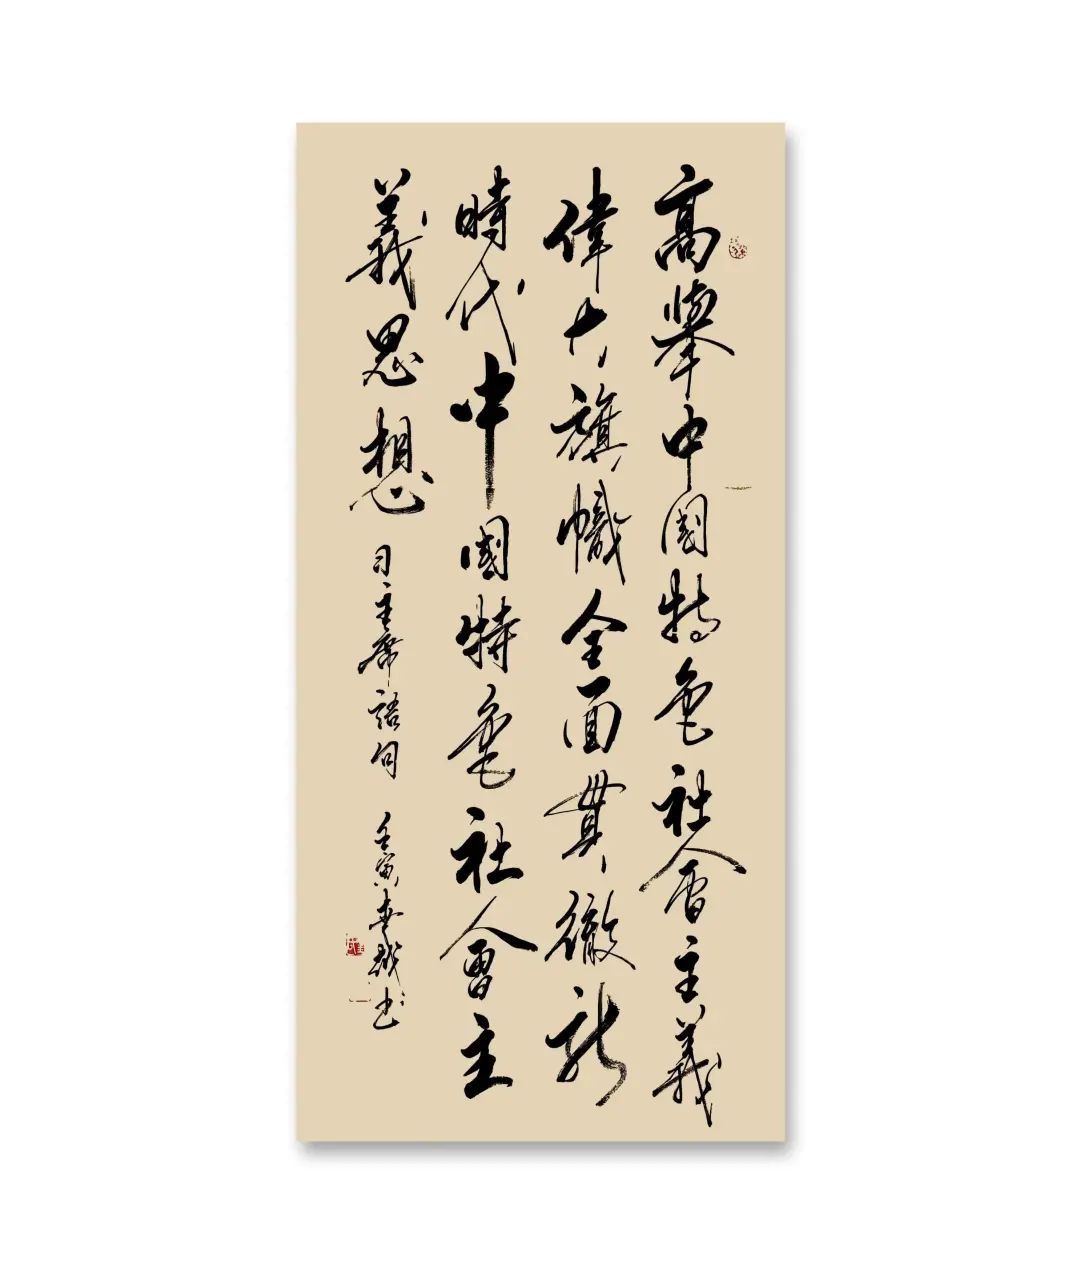 高舉中國特色社會主義
偉大旗幟全面貫徹新
時代中國特色社會主
義思想
习主席語句
壬寅春越书